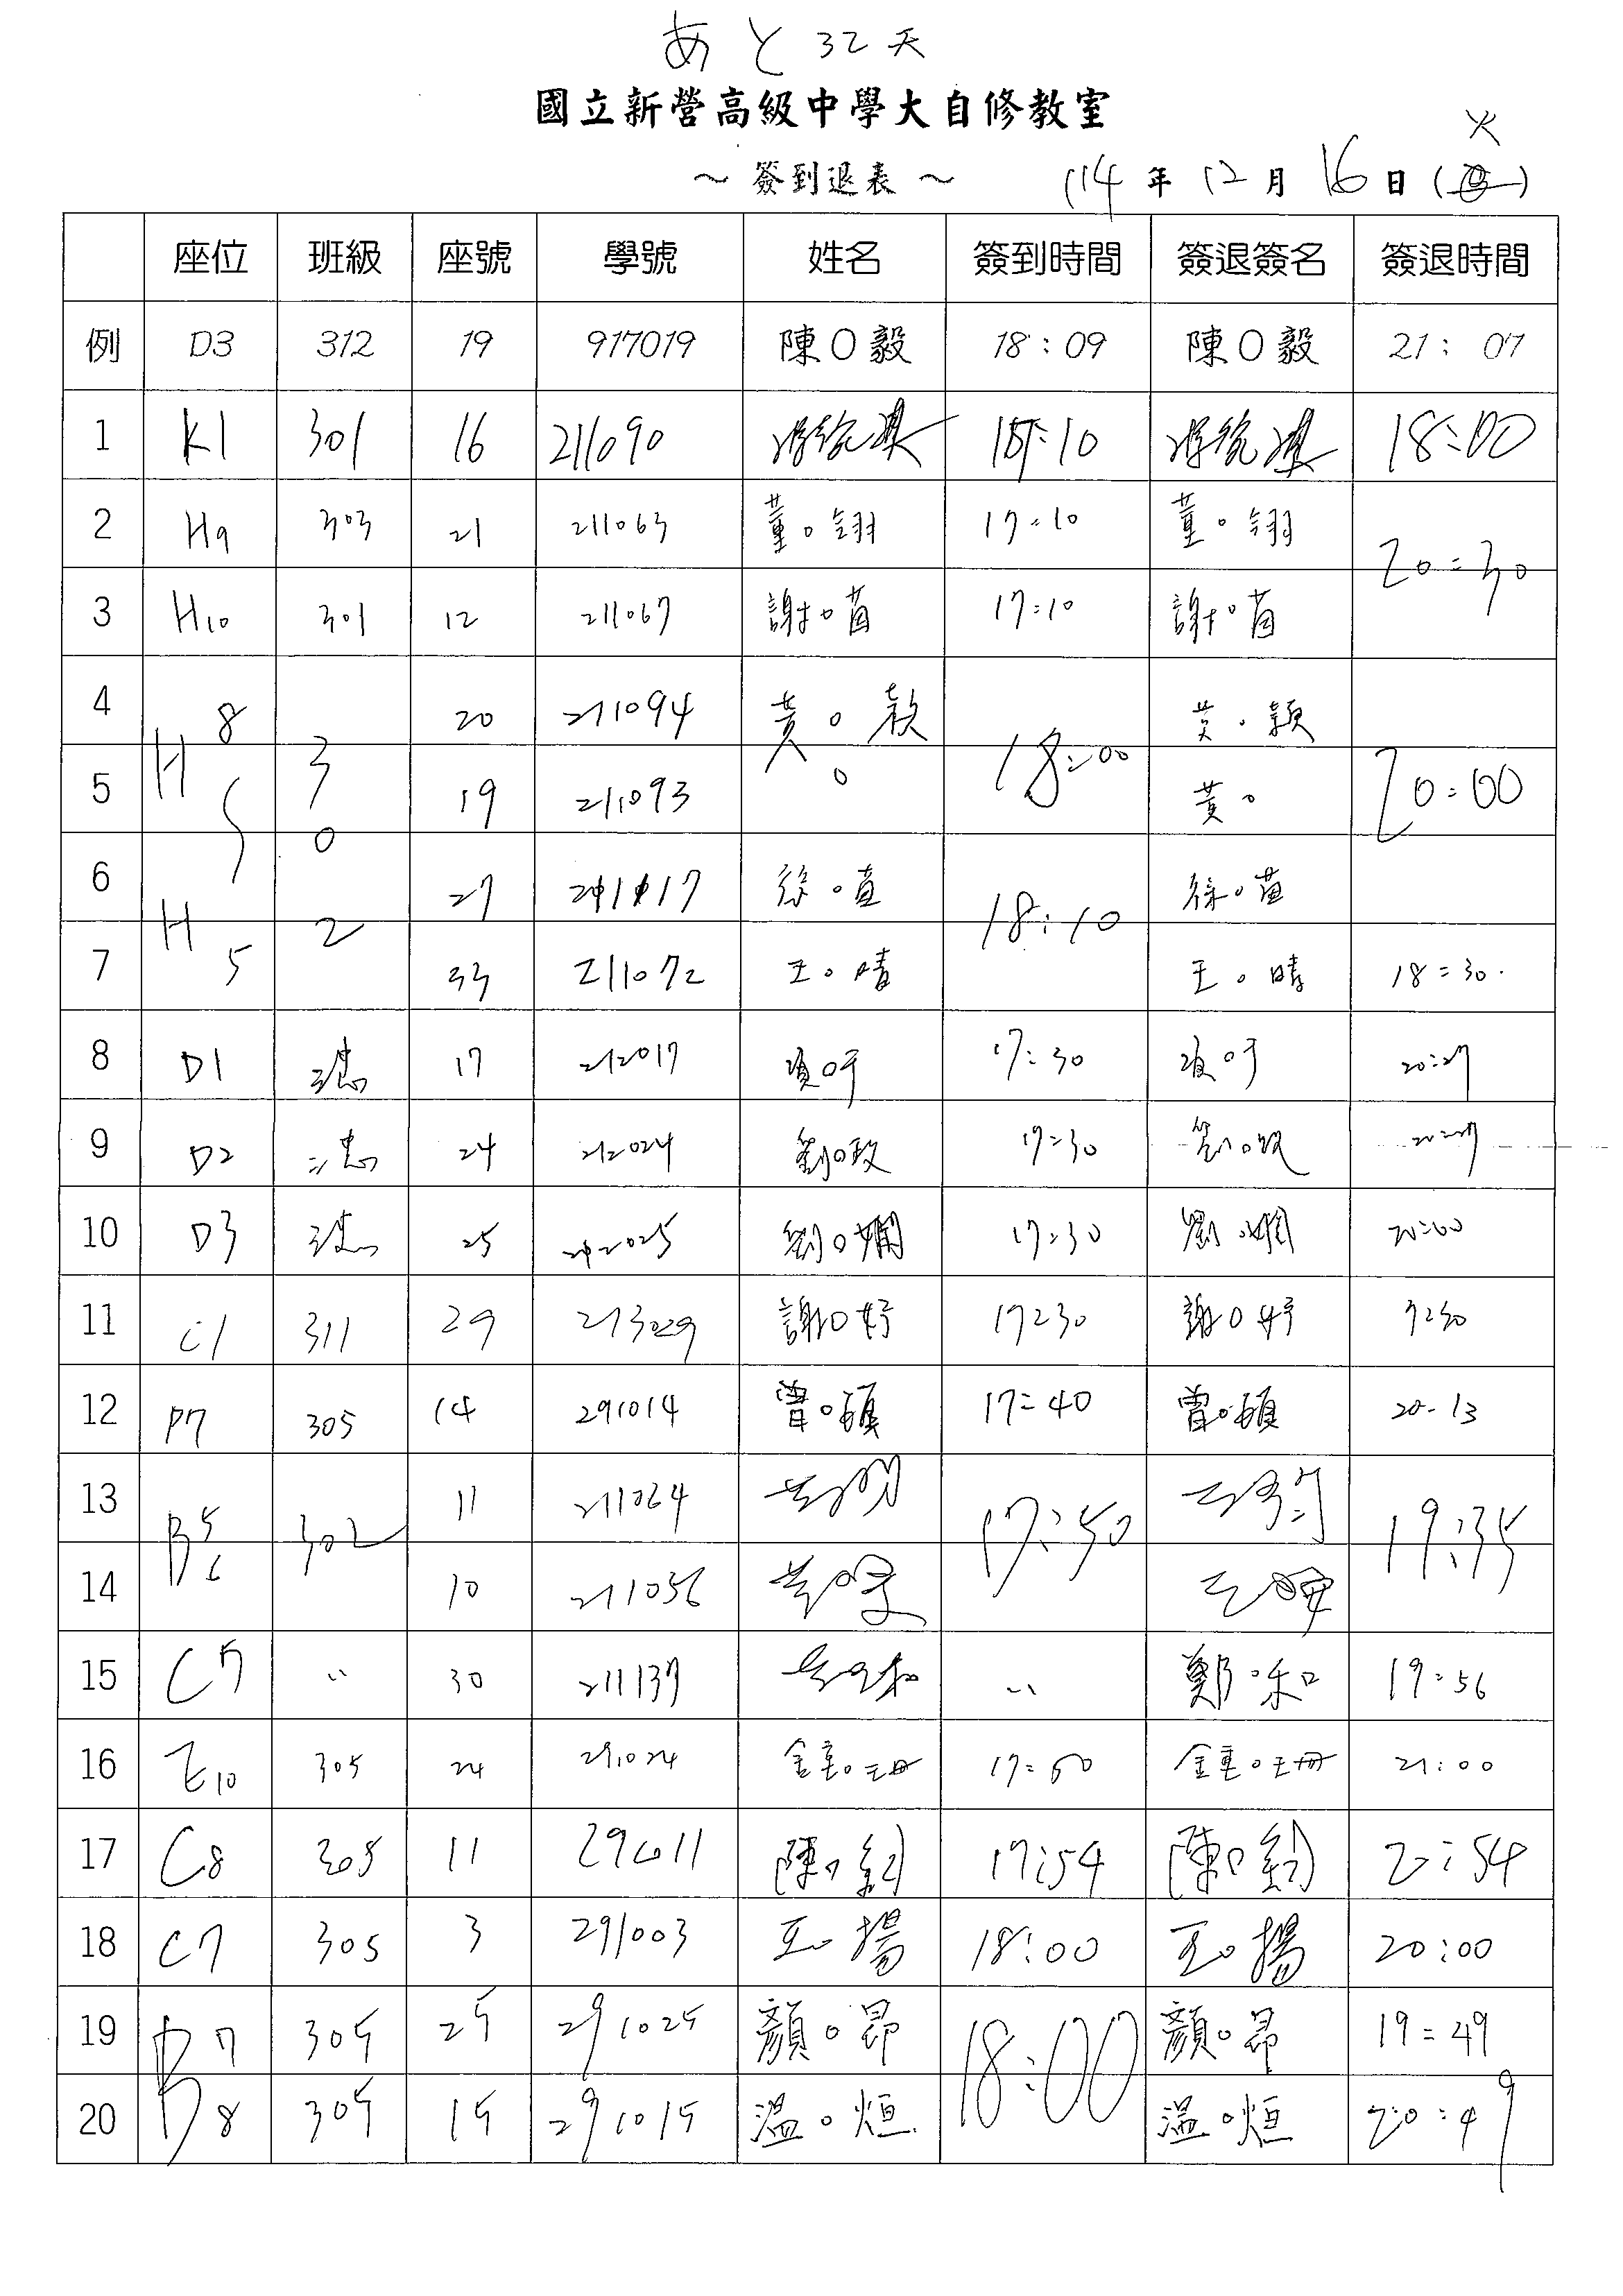 あと32天
國立新營高級中學大自修教室
～簽到退表～ 114年12月16日(火)
座位 班級 座號 學號 姓名 簽到時間 簽退簽名 簽退時間
例 D3 312 19 917019 陳O毅 18:09 陳O毅 21:07
1 K1 301 16 211090 :10 18:00
2 H9 303 21 211063 董o翎 17:10 董o翎 20:30
3 H10 301 12 211067 謝o茵 17:10 謝o茵
4 H8 20 211094 黃o穎 18:00 黃o穎
5 ∫ 302 19 211093 黃o 20:00
6 27 211117 徐o萱 18:10 徐o萱
7 H5 33 211072 王o晴 王o晴 18:30
8 D1 三忠 17 212017 17:30 20:27
9 D2 三忠 24 212024 劉o政 17:30 劉o政 20:27
10 D3 三忠 25 212025 劉o嫻 17:30 劉o嫻 20:00
11 C1 311 29 213029 謝O妤 17:30 謝O妤
12 P7 305 14 291014 曾o碩 17:40 曾o碩 20:13
13 B5 302 11 211024 17:50 19:35
14 B6 10 211056
15 C7 〃 30 211137 〃 鄭o和 19:56
16 E10 305 24 291024 鍾o珊 17:50 鍾o珊 21:00
17 C8 305 11 291011 陳o 17:54 陳o :54
18 C7 305 3 291003 王o揚 18:00 王o揚 20:00
19 B7 305 25 291025 顏o昂 18:00 顏o昂 19:49
20 B8 305 15 291015 溫o烜 溫o烜 20:49